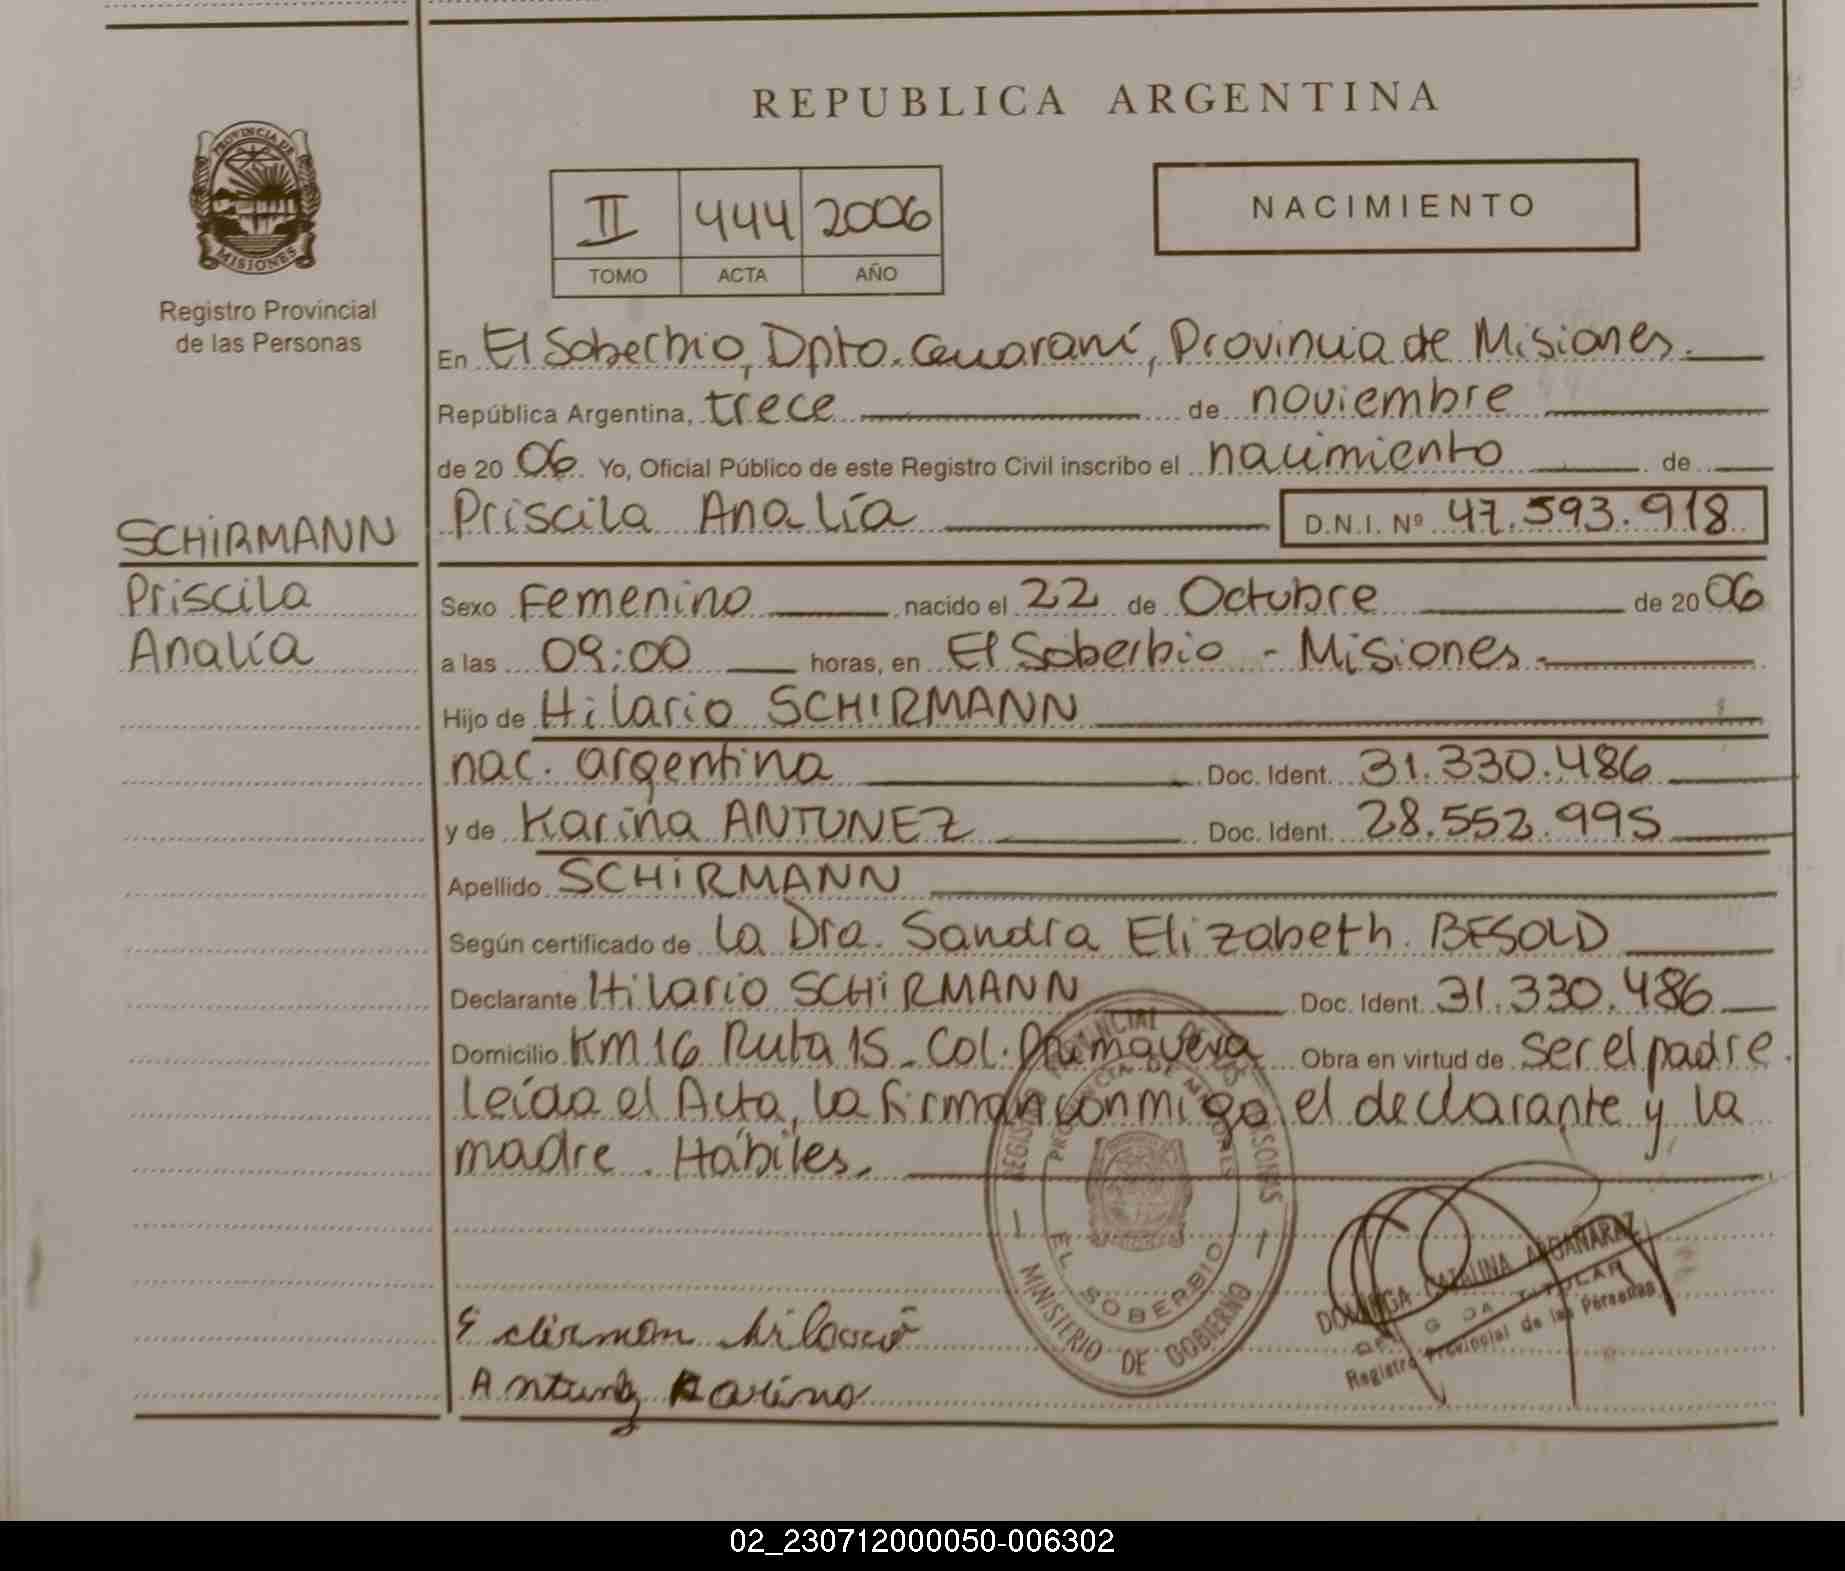 REPUBLICA ARGENTINA
PROVINCIA DE
MISIONES
Registro Provincial
de las Personas
II 444 2006
TOMO ACTA AÑO
NACIMIENTO
En El Soberbio, Dpto. Guaraní, Provincia de Misiones.
República Argentina, trece de noviembre
de 20 06 Yo, Oficial Público de este Registro Civil inscribo el nacimiento de
Priscila Analía D.N.I. Nº 47.593.918
SCHiRMANN
Priscila
Analía
Sexo Femenino nacido el 22 de Octubre de 20 06
a las 09:00 horas, en El Soberbio - Misiones.
Hijo de Hilario SCHIRMANN
nac. argentina Doc. Ident. 31.330.486
y de Karina ANTUNEZ Doc. Ident. 28.552.995
Apellido SCHiRMANN
Según certificado de la Dra. Sandra Elizabeth. BESOLD
Declarante Hilario SCHiRMANN Doc. Ident. 31.330.486
Domicilio KM 16 Ruta 15 - Col. Primavera Obra en virtud de ser el padre.
leída el Acta, la firman conmigo el declarante y la
madre. Hábiles.
REGISTRO PROVINCIAL DE LAS PERSONAS
PROVINCIA DE MISIONES
EL SOBERBIO
MINISTERIO DE GOBIERNO
DOMINGA CATALINA ARGAÑARAZ
DELEGADA TITULAR
Registro Provincial de las Personas
Schirman hilario
Antunez Karina
02_230712000050-006302